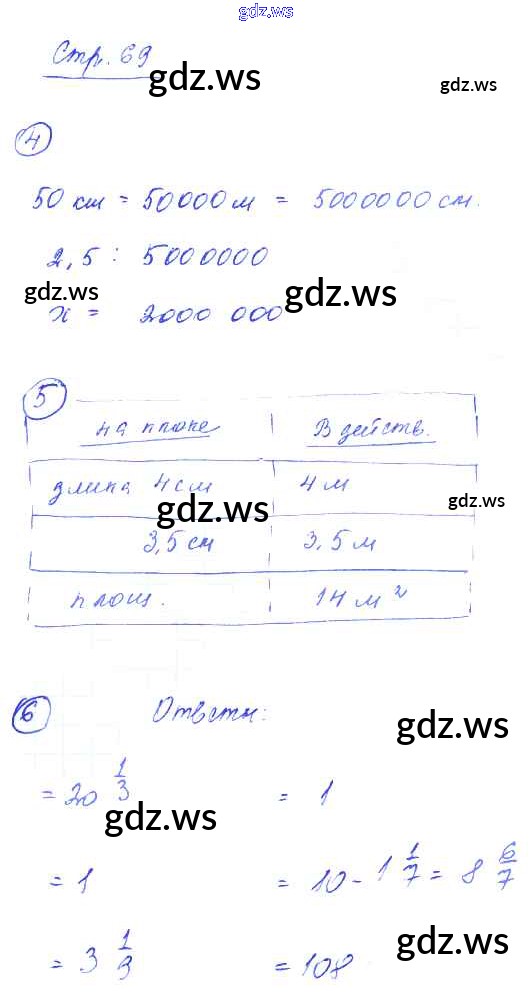 gdz.ws
Стр. 69
gdz.ws
gdz.ws
4
50 км = 50000 м = 5000000 см.
2,5 : 5000000
gdz.ws
gdz.ws
x = 2000 000
5
на плане В действ.
длина 4 см 4 м
gdz.ws
gdz.ws
3,5 см 3,5 м
площ. 14 м²
6 Ответы:
gdz.ws
= 20 1/3 = 1
gdz.ws
= 1 = 10 - 1 1/7 = 8 6/7
gdz.ws
= 3 1/3 = 108